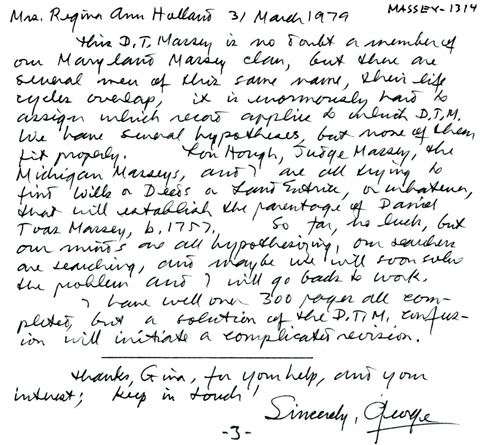 MASSEY-1314
Mrs. Regina Ann Holland 31 March 1979
This D.T. Massey is no doubt a member of
our Maryland Massey clan, but there are
several men of this same name, their life
cycles overlap, it is enormously hard to
assign which record applies to which D.T.M.
We have several hypotheses, but none of them
fit properly. Lon Hough, Judge Massey, the
Michigan Masseys, and I are all trying to
find Wills or Deeds or Land Entries, or whatever,
that will establish the parentage of Daniel
Toas Massey, b. 1757. So far, no luck, but
our minds are all hypothesizing, our searchers
are searching, and maybe we will soon solve
the problem and I will go back to work.
I have well over 300 pages all com-
pleted, but a solution of the D.T.M. confus-
ion will initiate a complicated revision.
Thanks, Gina, for your help, and your
interest; keep in touch!
Sincerely, George
-3-